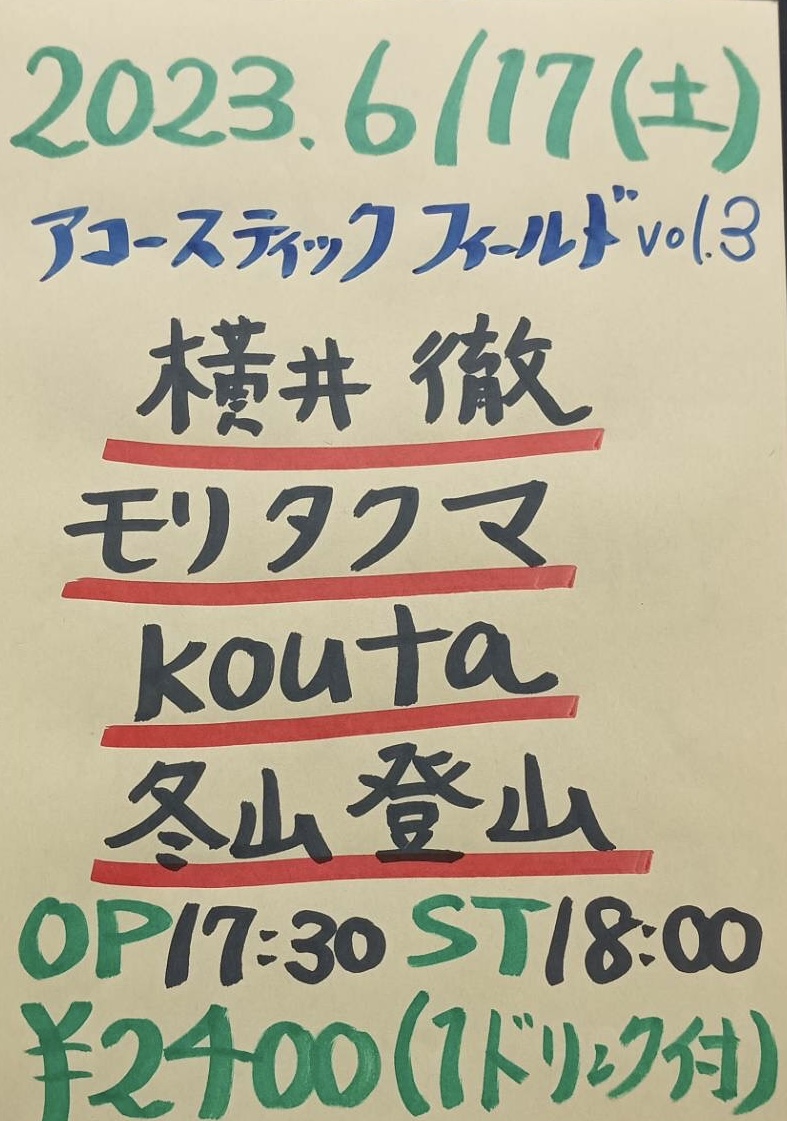 2023.6/17(土)
アコースティックフィールドvol.3
横井 徹
モリタクマ
kouta
冬山登山
OP17:30 ST18:00
¥2400(1ドリンク付)